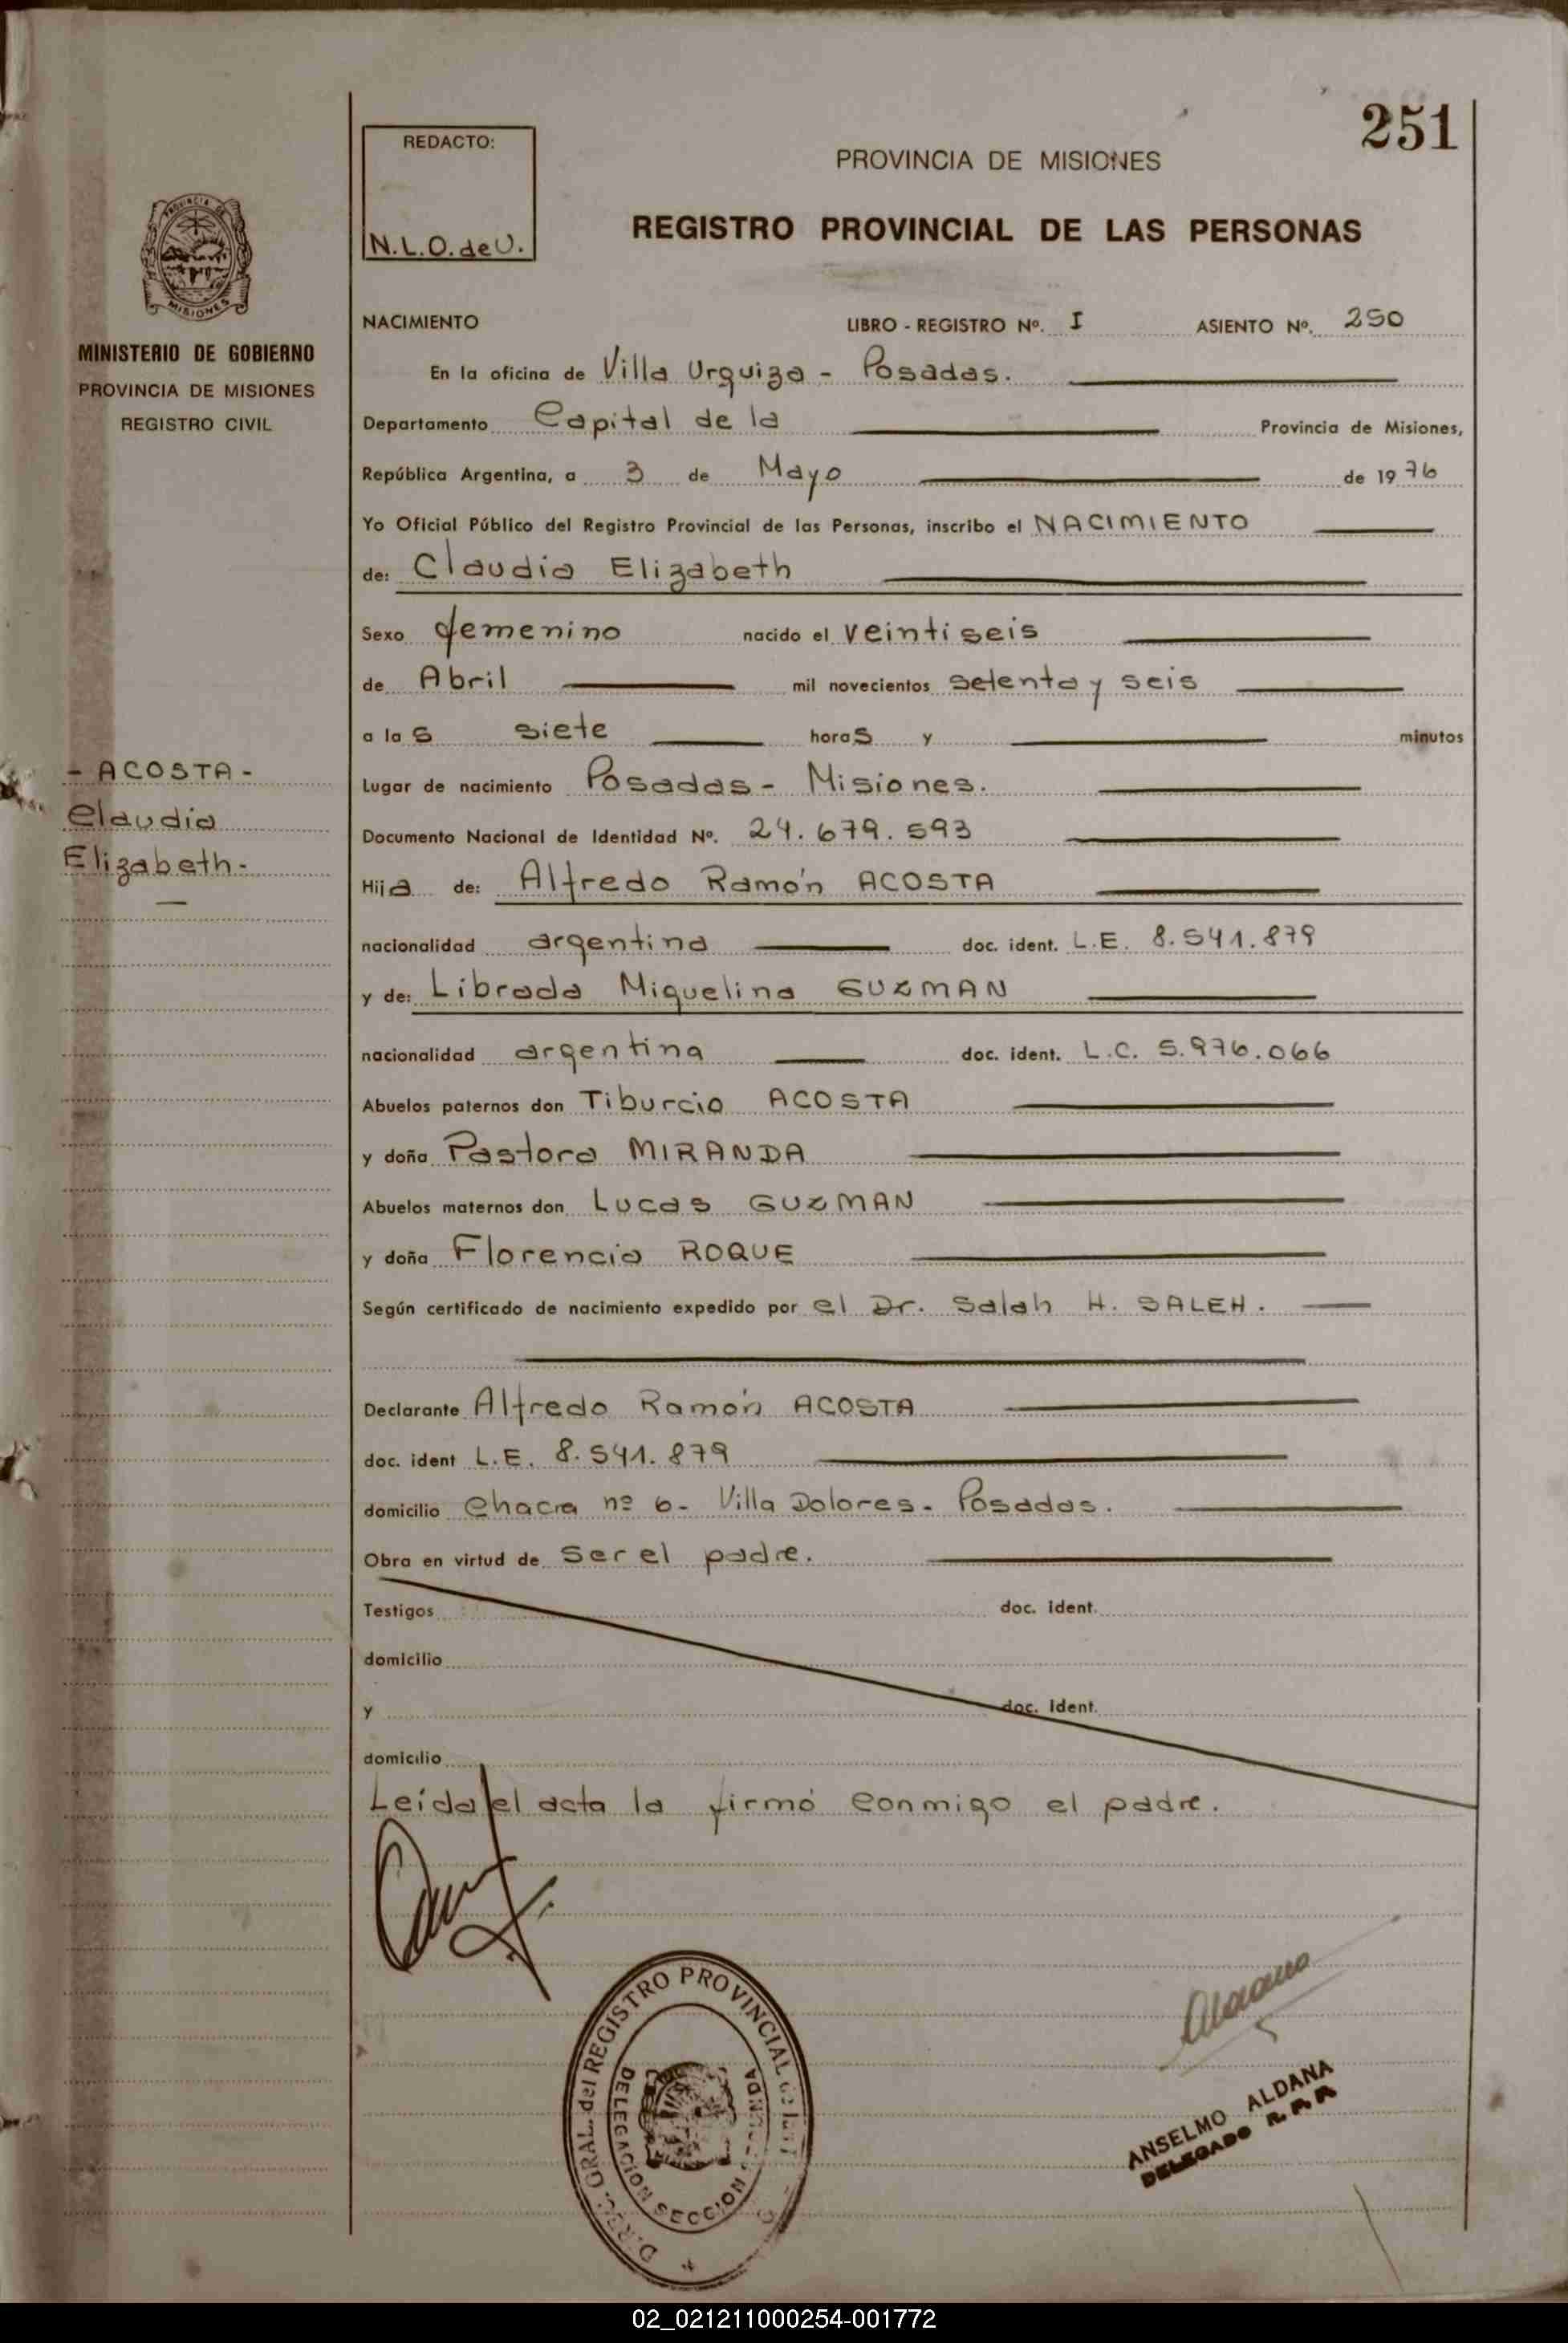 251
REDACTO:
N.L.O. de U.
PROVINCIA DE MISIONES
REGISTRO PROVINCIAL DE LAS PERSONAS
PROVINCIA DE
MISIONES
MINISTERIO DE GOBIERNO
PROVINCIA DE MISIONES
REGISTRO CIVIL
NACIMIENTO LIBRO - REGISTRO Nº. I ASIENTO Nº. 250
En la oficina de Villa Urquiza - Posadas.
Departamento Capital de la Provincia de Misiones,
República Argentina, a 3 de Mayo de 1976
Yo Oficial Público del Registro Provincial de las Personas, inscribo el NACIMIENTO
de: Claudia Elizabeth
Sexo femenino nacido el veintiseis
de Abril mil novecientos setenta y seis
a las siete horas y minutos
- ACOSTA -
Claudia
Elizabeth-
Lugar de nacimiento Posadas - Misiones.
Documento Nacional de Identidad Nº. 24.679.593
Hija de: Alfredo Ramón ACOSTA
nacionalidad argentina doc. ident. L.E. 8.541.879
y de: Librada Miquelina GUZMAN
nacionalidad argentina doc. ident. L.C. 5.976.066
Abuelos paternos don Tiburcio ACOSTA
y doña Pastora MIRANDA
Abuelos maternos don Lucas GUZMAN
y doña Florencia ROQUE
Según certificado de nacimiento expedido por el Dr. Salah H. SALEH.
Declarante Alfredo Ramón ACOSTA
doc. ident L.E. 8.541.879
domicilio Chacra nº 6 - Villa Dolores - Posadas.
Obra en virtud de ser el padre.
Testigos doc. ident.
domicilio
y doc. ident.
domicilio
Leída el acta la firmó conmigo el padre.
GRAL. del REGISTRO PROVINCIAL
DELEGACION SECCION
ANSELMO ALDANA
DELEGADO R. P. P.
02_021211000254-001772